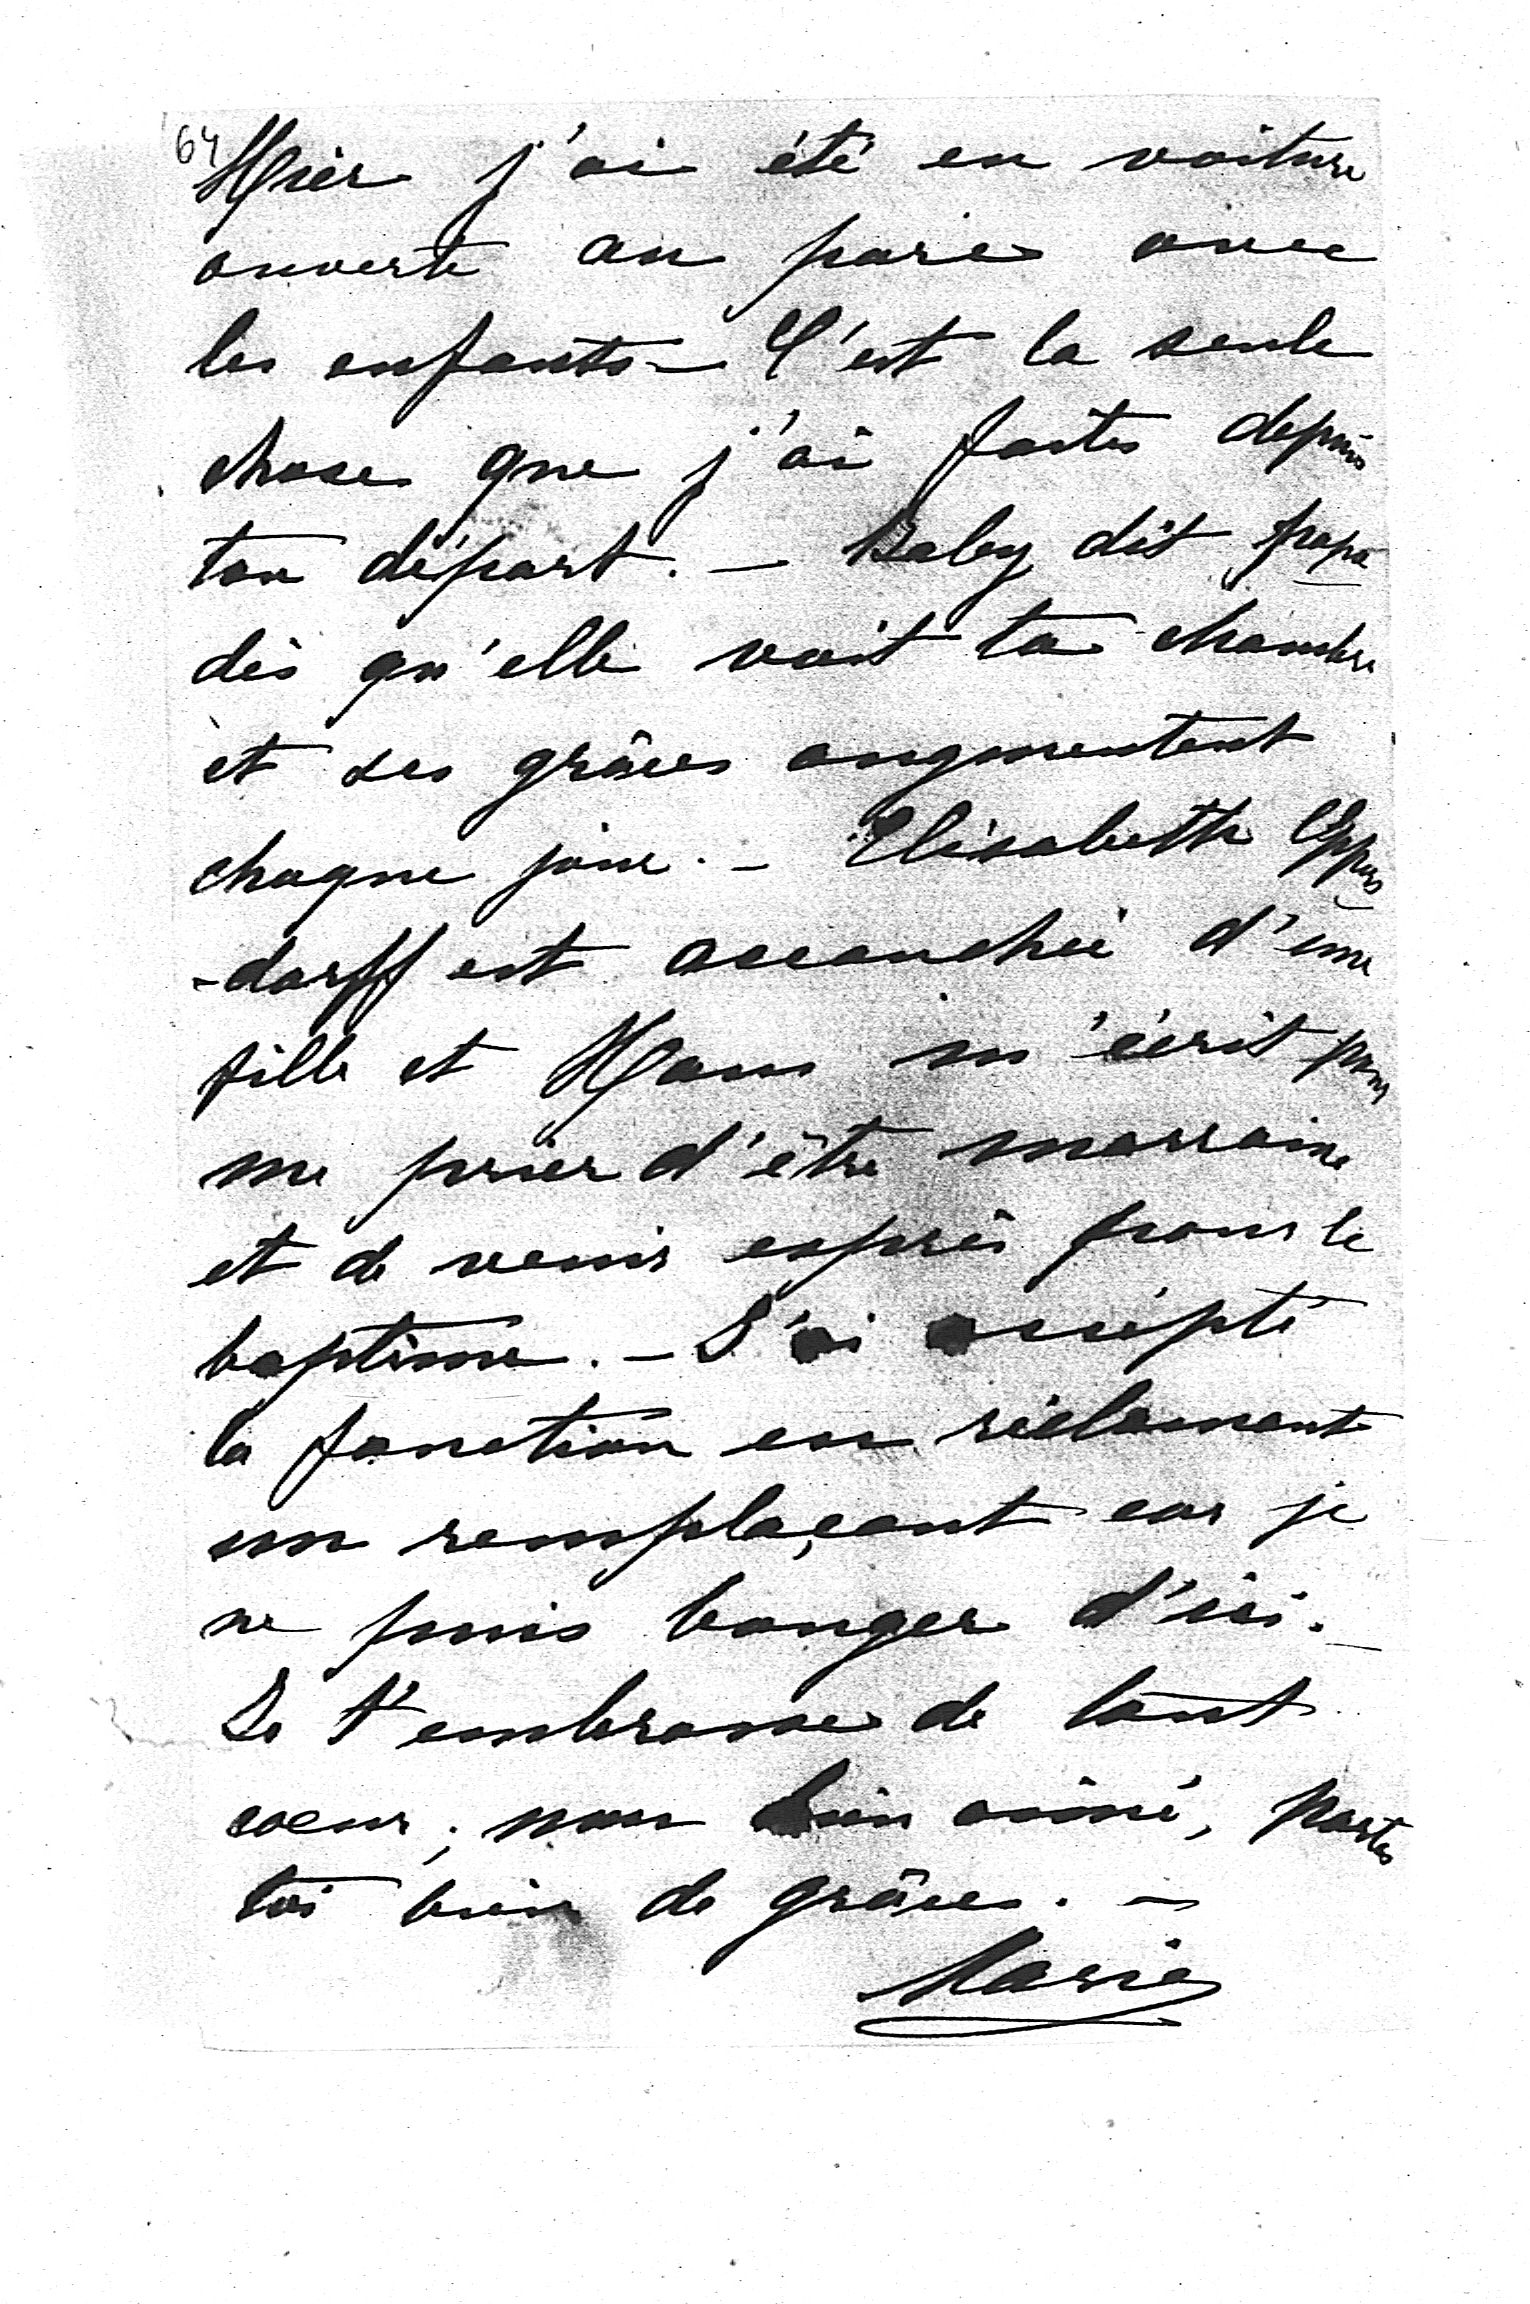 64 Hier j'ai été en voiture
ouverte au parc avec
les enfants – C'est la seule
chose que j'ai faite depuis
ton départ. – Baby dit papa
dès qu'elle voit ta chambre
et ses grâces augmentent
chaque jour. – Elisabeth Eppers
-dorff est accouchée d'une
fille et Hans m'écrit pour
me prier d'être marraine
et de venir exprès pour le
baptême. – J'ai accepté
la fonction en réclamant
un remplaçant car je
ne puis bouger d'ici. –
Je t'embrasse de tout
cœur, mon bien aimé, porte
toi bien de grâce. –
Marie